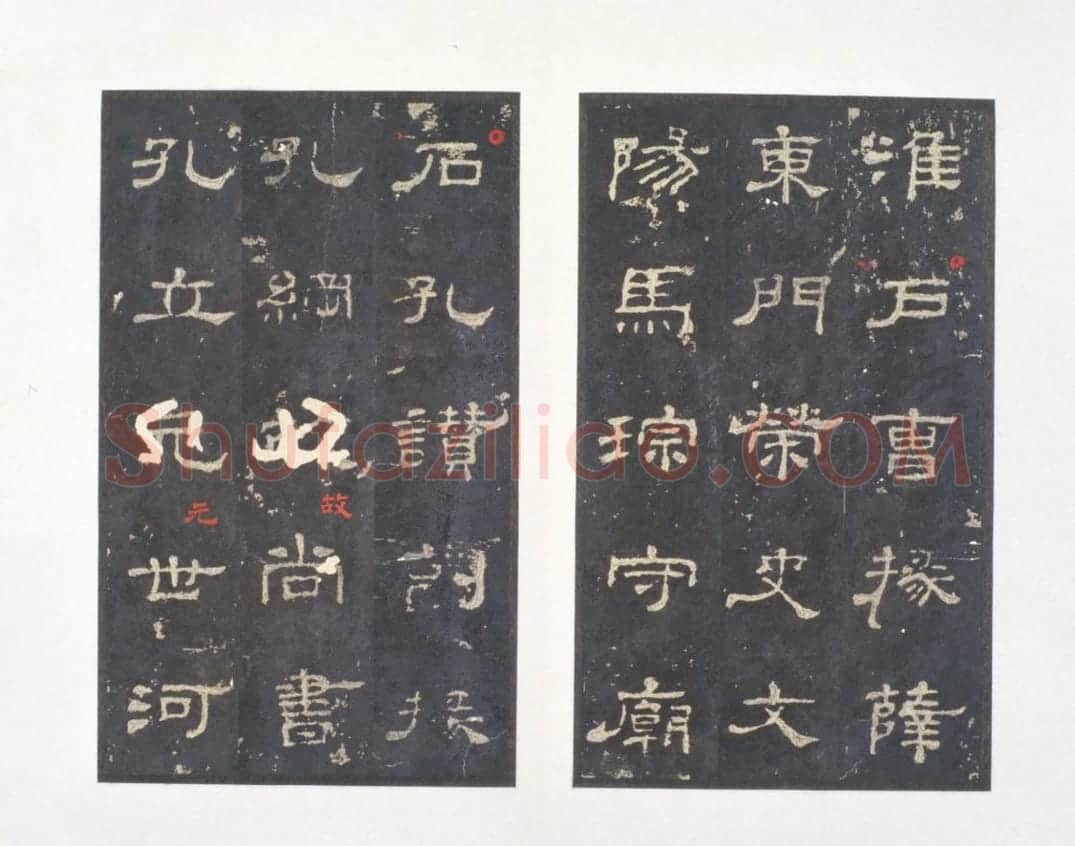 淮戶曹掾薛
東門榮史文
陽馬琮守廟
石孔讃副掾
孔綱故尚書
故
孔立元世河
元
Shufaziliao.COM